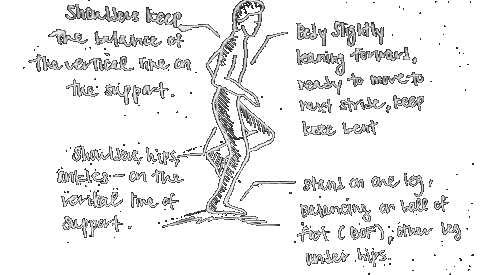 Shoulders keep
the balance of
the vertical line on
the support.
Body slightly
leaning forward,
ready to move to
next stride, keep
knee bent
Shoulder, hips,
ankles - on the
vertical line of
support.
Stand on one leg,
balancing on ball of
foot (BOF), other leg
under hips.